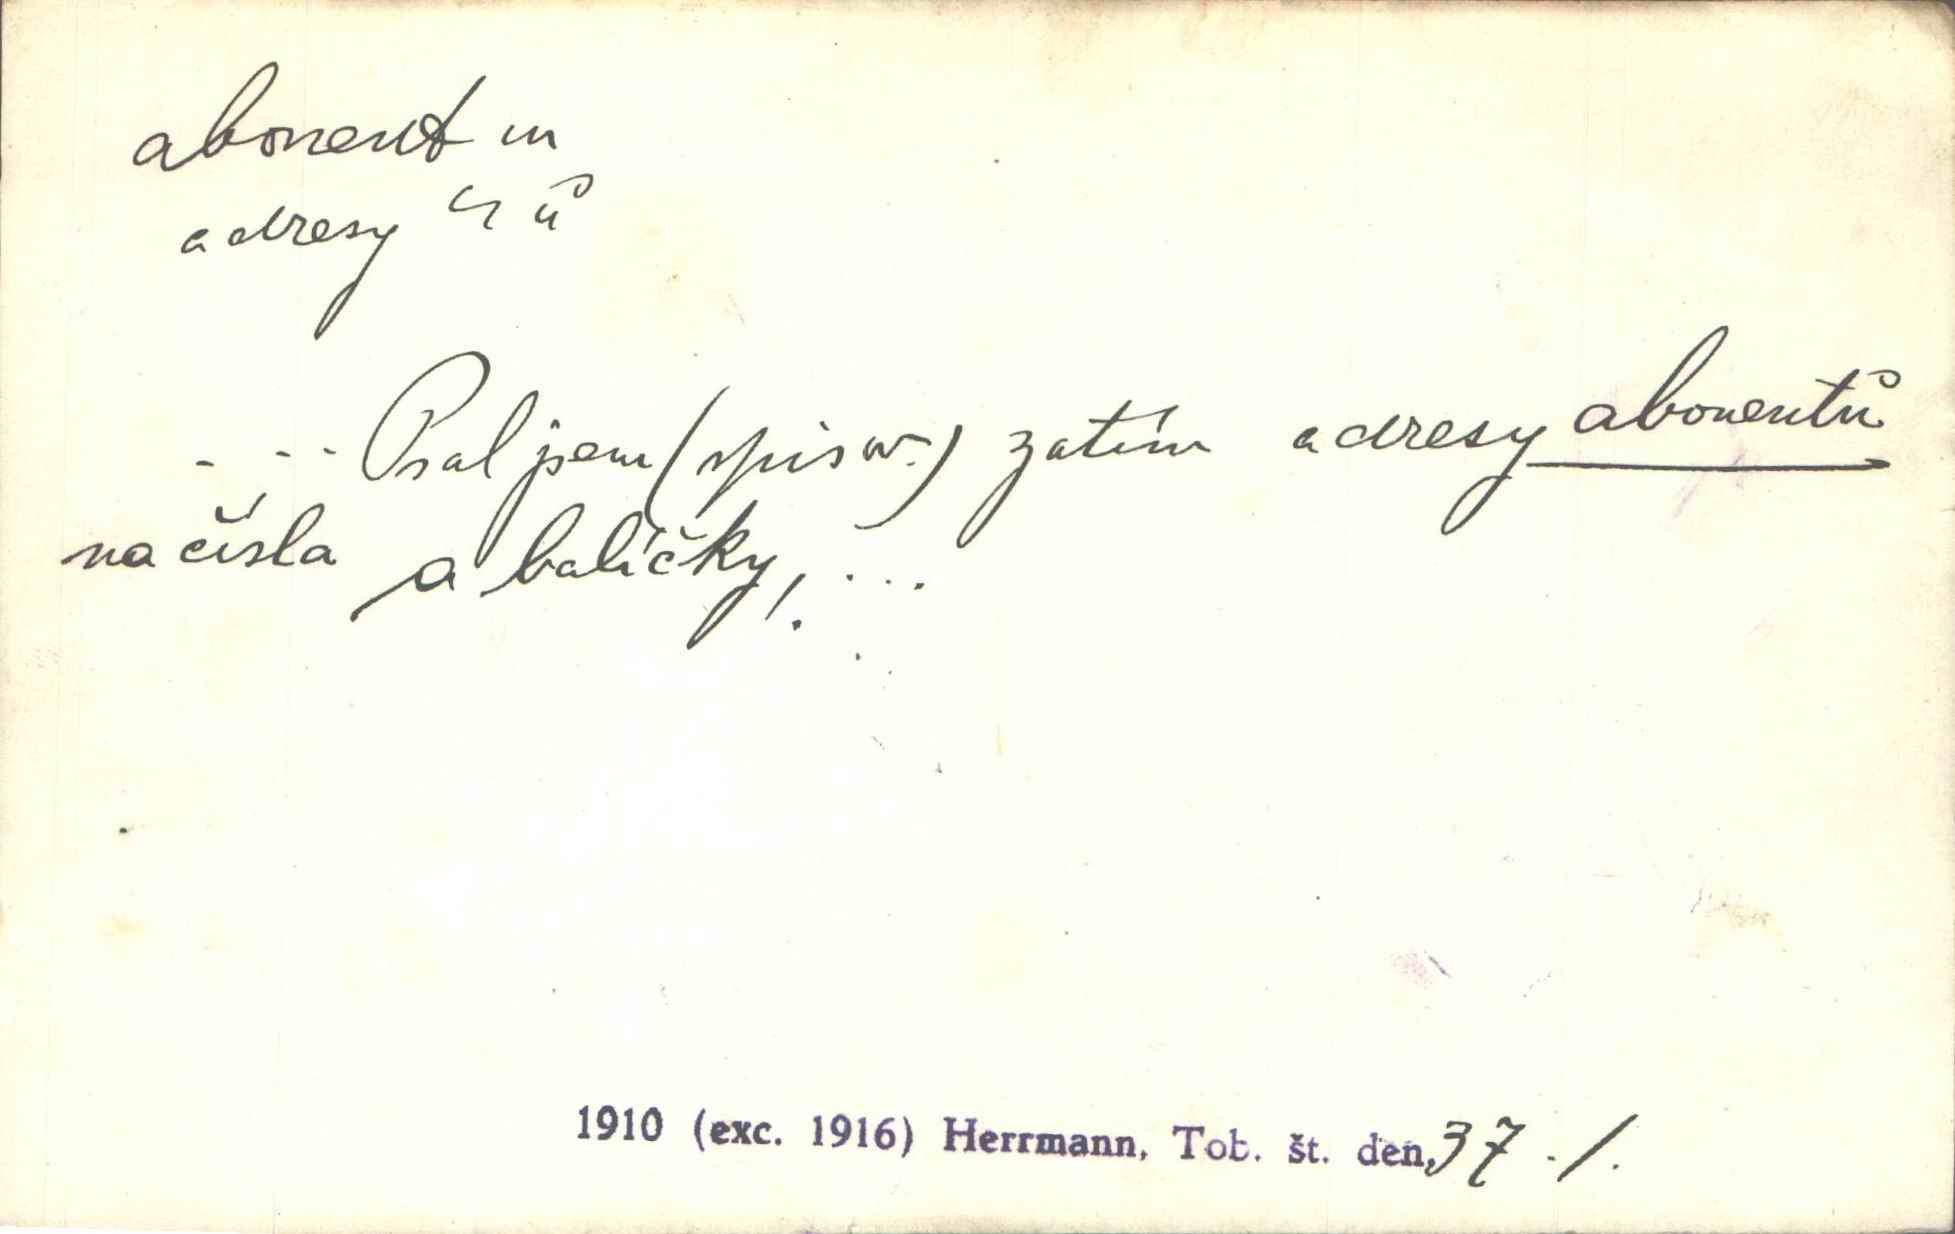 abonent m
adresy ~ ů
... Psal jsem (spisov.) zatím adresy abonentů
na čísla a balíčky, ...
1910 (exc. 1916) Herrmann, Tob. št. den, 37./.